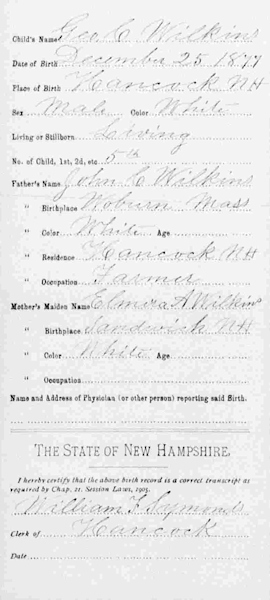 Child's Name Geo C Wilkins
Date of Birth December 25 1877
Place of Birth Hancock NH
Sex Male Color White
Living or Stillborn Living
No. of Child, 1st, 2d, etc. 5th
Father's Name John C Wilkins
" Birthplace Woburn Mass
" Color White Age
" Residence Hancock NH
" Occupation Farmer
Mother's Maiden Name Elmira A Wilkins
" Birthplace Sandwich NH
" Color White Age
" Occupation
Name and Address of Physician (or other person) reporting said Birth.
THE STATE OF NEW HAMPSHIRE.
I hereby certify that the above birth record is a correct transcript as
required by Chap. 21. Session Laws, 1905.
William F Symonds
Clerk of Hancock
Date